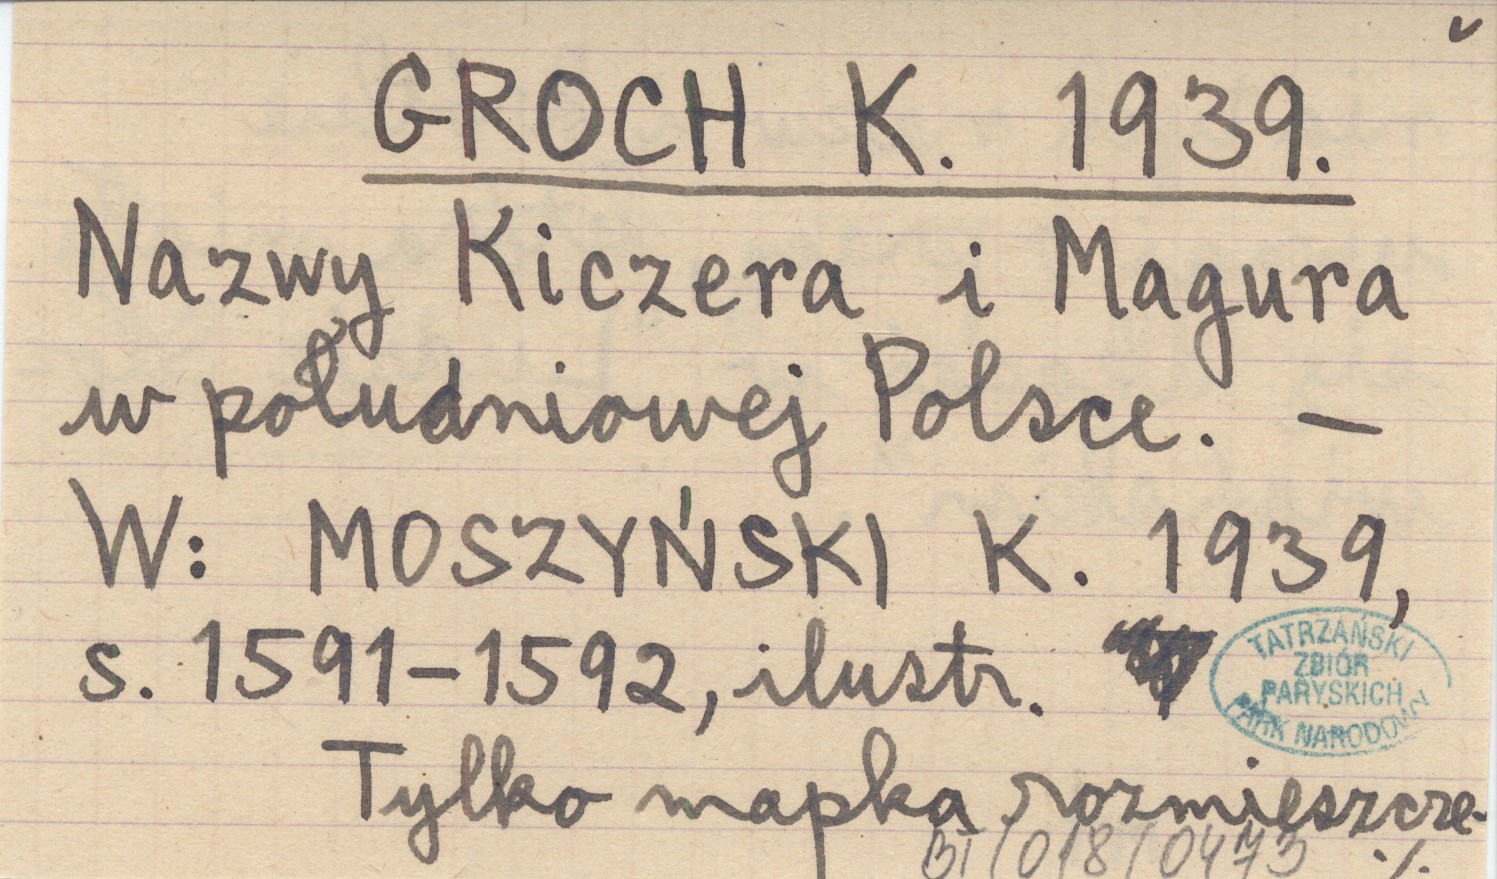 GROCH K. 1939.
Nazwy Kiczera i Magura
w południowej Polsce. —
W: MOSZYŃSKI K. 1939,
s. 1591-1592, ilustr.
TATRZAŃSKI
ZBIÓR
PARYSKICH
PARK NARODOWY
Tylko mapka rozmieszcze-
BT/018/0473 ./.